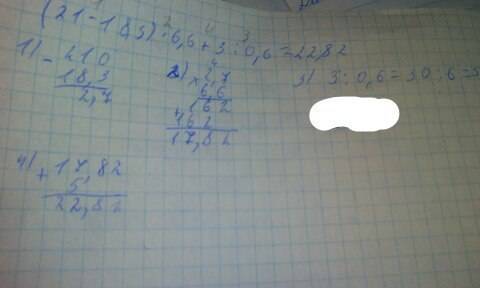 (21-18,3)·6,6+3:0,6=22,82
1) -21,0
18,3
2,7
2) ×2,7
6,6
162
162
17,82
3) 3:0,6=30:6=5
4) +17,82
5
22,82